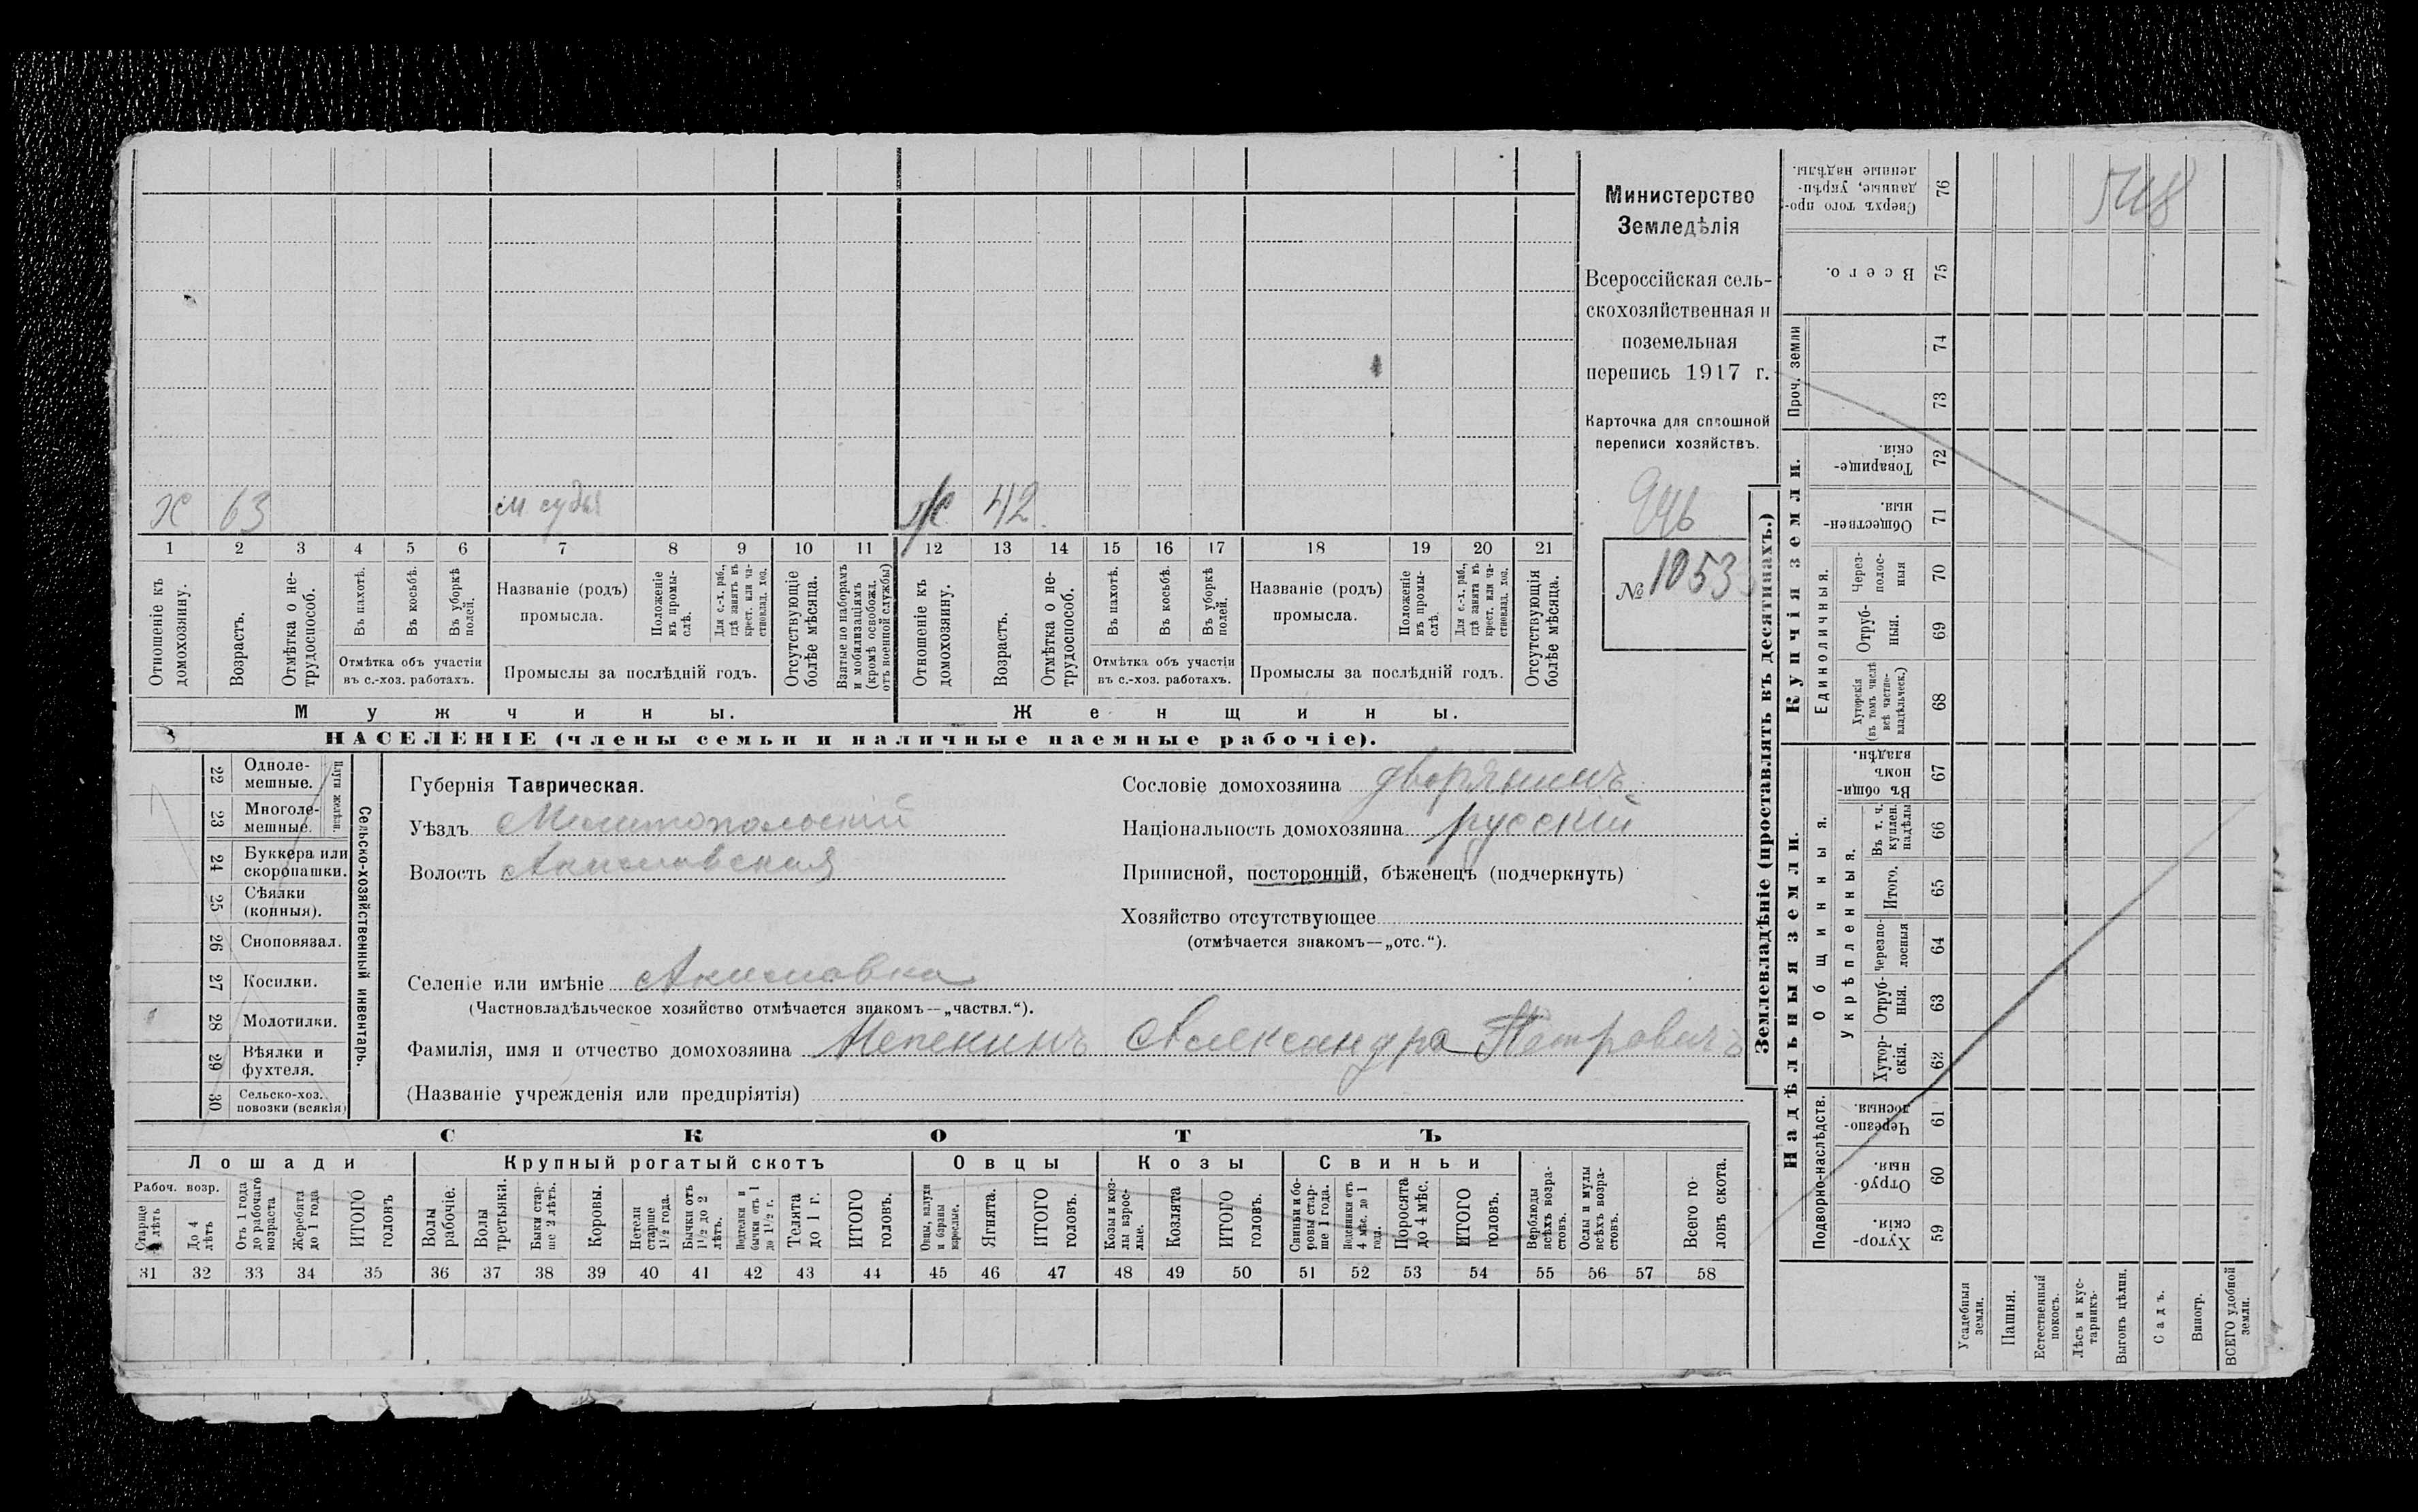 Х 63 м. судья ж 42
1 2 3 4 5 6 7 8 9 10 11 12 13 14 15 16 17 18 19 20 21
Отношеніе къ домохозяину.
Возрастъ.
Отмѣтка о не-трудоспособ.
Въ пахотѣ.
Въ косьбѣ.
Въ уборкѣ полей.
Отмѣтка объ участіи
въ с.-хоз. работахъ.
Названіе (родъ)
промысла.
Положеніе въ промы-слѣ.
Для с.-х. раб., гдѣ занятъ въ крест. или ча-стновлад. хоз.
Промыслы за послѣдній годъ.
Отсутствующіе болѣе мѣсяца.
Взятые по наборамъ и мобилизаціямъ (кромѣ освобожд. отъ военной службы)
Отношеніе къ домохозяину.
Возрастъ.
Отмѣтка о не-трудоспособ.
Въ пахотѣ.
Въ косьбѣ.
Въ уборкѣ полей.
Отмѣтка объ участіи
въ с.-хоз. работахъ.
Названіе (родъ)
промысла.
Положеніе въ промы-слѣ.
Для с.-х. раб., гдѣ занята въ крест. или ча-стновлад. хоз.
Промыслы за послѣдній годъ.
Отсутствующія болѣе мѣсяца.
Мужчины. Женщины.
НАСЕЛЕНІЕ (члены семьи и наличные наемные рабочіе).
Министерство
Земледѣлія
Всероссійская сель-
скохозяйственная и
поземельная
перепись 1917 г.
Карточка для сплошной
переписи хозяйствъ.
946
№ 1053
22 Одноле-мешные.
23 Многоле-мешные.
Плуги желѣзн.
24 Буккера или скоропашки.
25 Сѣялки (конныя).
26 Сноповязал.
27 Косилки.
28 Молотилки.
29 Вѣялки и фухтеля.
30 Сельско-хоз. повозки (всякія)
Сельско-хозяйственный инвентарь.
Губернія Таврическая.
Уѣздъ Мелитопольскій
Волость Акимовская
Сословіе домохозяина дворянинъ
Національность домохозяина русскій
Приписной, посторонній, бѣженецъ (подчеркнуть)
Хозяйство отсутствующее
(отмѣчается знакомъ—„отс.“).
Селеніе или имѣніе Акимовка
(Частновладѣльческое хозяйство отмѣчается знакомъ—„частвл.“).
Фамилія, имя и отчество домохозяина Александръ Петровичъ
(Названіе учрежденія или предпріятія)
СКОТЪ
Лошади Крупный рогатый скотъ Овцы Козы Свиньи
Рабоч. возр.
Старше 4 лѣтъ
До 4 лѣтъ
Отъ 1 года до рабочаго возраста
Жеребята до 1 года
ИТОГО головъ
Волы рабочіе.
Волы третьяки.
Быки стар-ше 2 лѣтъ.
Коровы.
Нетели старше 1½ года.
Бычки отъ 1½ до 2 лѣтъ.
Подтелки и бычки отъ 1 до 1½ г.
Телята до 1 г.
ИТОГО головъ.
Овцы, валухи и бараны взрослые.
Ягнята.
ИТОГО головъ.
Козы и коз-лы взрос-лые.
Козлята
ИТОГО головъ.
Свиньи и бо-ровы стар-ше 1 года.
Подсвинки отъ 4 мѣс. до 1 года.
Поросята до 4 мѣс.
ИТОГО головъ.
Верблюды всѣхъ возра-стовъ.
Ослы и мулы всѣхъ возра-стовъ.
Всего го-ловъ скота.
31 32 33 34 35 36 37 38 39 40 41 42 43 44 45 46 47 48 49 50 51 52 53 54 55 56 57 58
Землевладѣніе (проставлять въ десятинахъ.)
Сверхъ того про-данные, укрѣп-ленные надѣлы. 76
548
Всего. 75
Проч. земли 74 73
Купчія земли.
Товарище-скія. 72
Обществен-ныя. 71
Единоличныя.
Через-полос-ныя 70
Отруб-ныя. 69
Хуторскія (въ томъ числѣ всѣ частно-владѣльческ.) 68
Надѣльныя земли.
Общинныя.
Въ общи-номъ владѣн. 67
Укрѣпленныя.
Въ т. ч. куплен. надѣлы 66
Итого. 65
Черезпо-лосныя 64
Отруб-ныя. 63
Хутор-скія. 62
Подворно-наслѣдств.
Черезпо-лосныя. 61
Отруб-ныя. 60
Хутор-скія. 59
Усадебныя земли.
Пашня.
Естественный покосъ.
Лѣсъ и кус-тарникъ.
Выгонъ цѣлин.
Садъ.
Виногр.
ВСЕГО удобной земли.